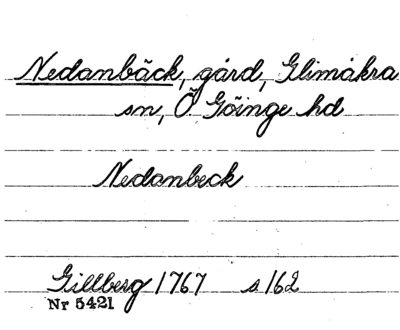 Nedanbäck, gård, Glimåkra
sn, Ö. Göinge hd
Nedanbeck
Gillberg 1767 s 162
Nr 5421